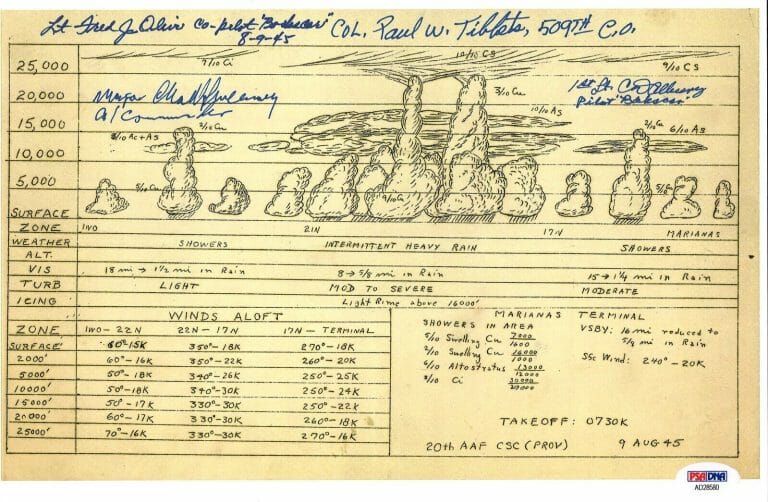 Lt Fred J Olivi Co-pilot "Bockscar" COL. Paul W. Tibbets, 509TH C.O.
8-9-45
25,000 7/10 Ci 10/10 CS 9/10 CS
20,000 3/10 Cu
Major Cha W Sweeney 1st Lt. C D Albury
A/Commander Pilot "Bockscar"
15,000 3/10 Cu 10/10 As 2/10 Cu
3/10 Ac+As 6/10 As
10,000
5,000 5/10 Cu 9/10 Cu 5/10 Cu
SURFACE
ZONE IWO 21N 17N MARIANAS
WEATHER SHOWERS INTERMITTENT HEAVY RAIN SHOWERS
ALT.
VIS 18 mi → 1 1/2 mi in Rain 8 → 5/8 mi in Rain 15 → 1 1/4 mi in Rain
TURB LIGHT MOD TO SEVERE MODERATE
ICING Light Rime above 16000'
WINDS ALOFT
ZONE IWO-22N 22N-17N 17N-TERMINAL
SURFACE' 60°-15K 350°-18K 270°-18K
2000' 60°-16K 350°-22K 260°-20K
5000' 50°-18K 340°-26K 250°-25K
10000' 50°-18K 340°-30K 250°-24K
15000' 50°-17K 330°-30K 250°-22K
20000' 60°-17K 330°-30K 260°-18K
25000' 70°-16K 330°-30K 270°-16K
MARIANAS TERMINAL
SHOWERS IN AREA
5/10 Swelling Cu 7000/1600
2/10 Swelling Cu 16000/1000
6/10 Altostratus 13000/12000
9/10 Ci 30000
VSBY: 16 mi reduced to
5/8 mi in Rain
Sfc Wind: 240°-20K
TAKEOFF: 0730K
20th AAF CSC (PROV) 9 AUG 45
PSA/DNA
AD28580